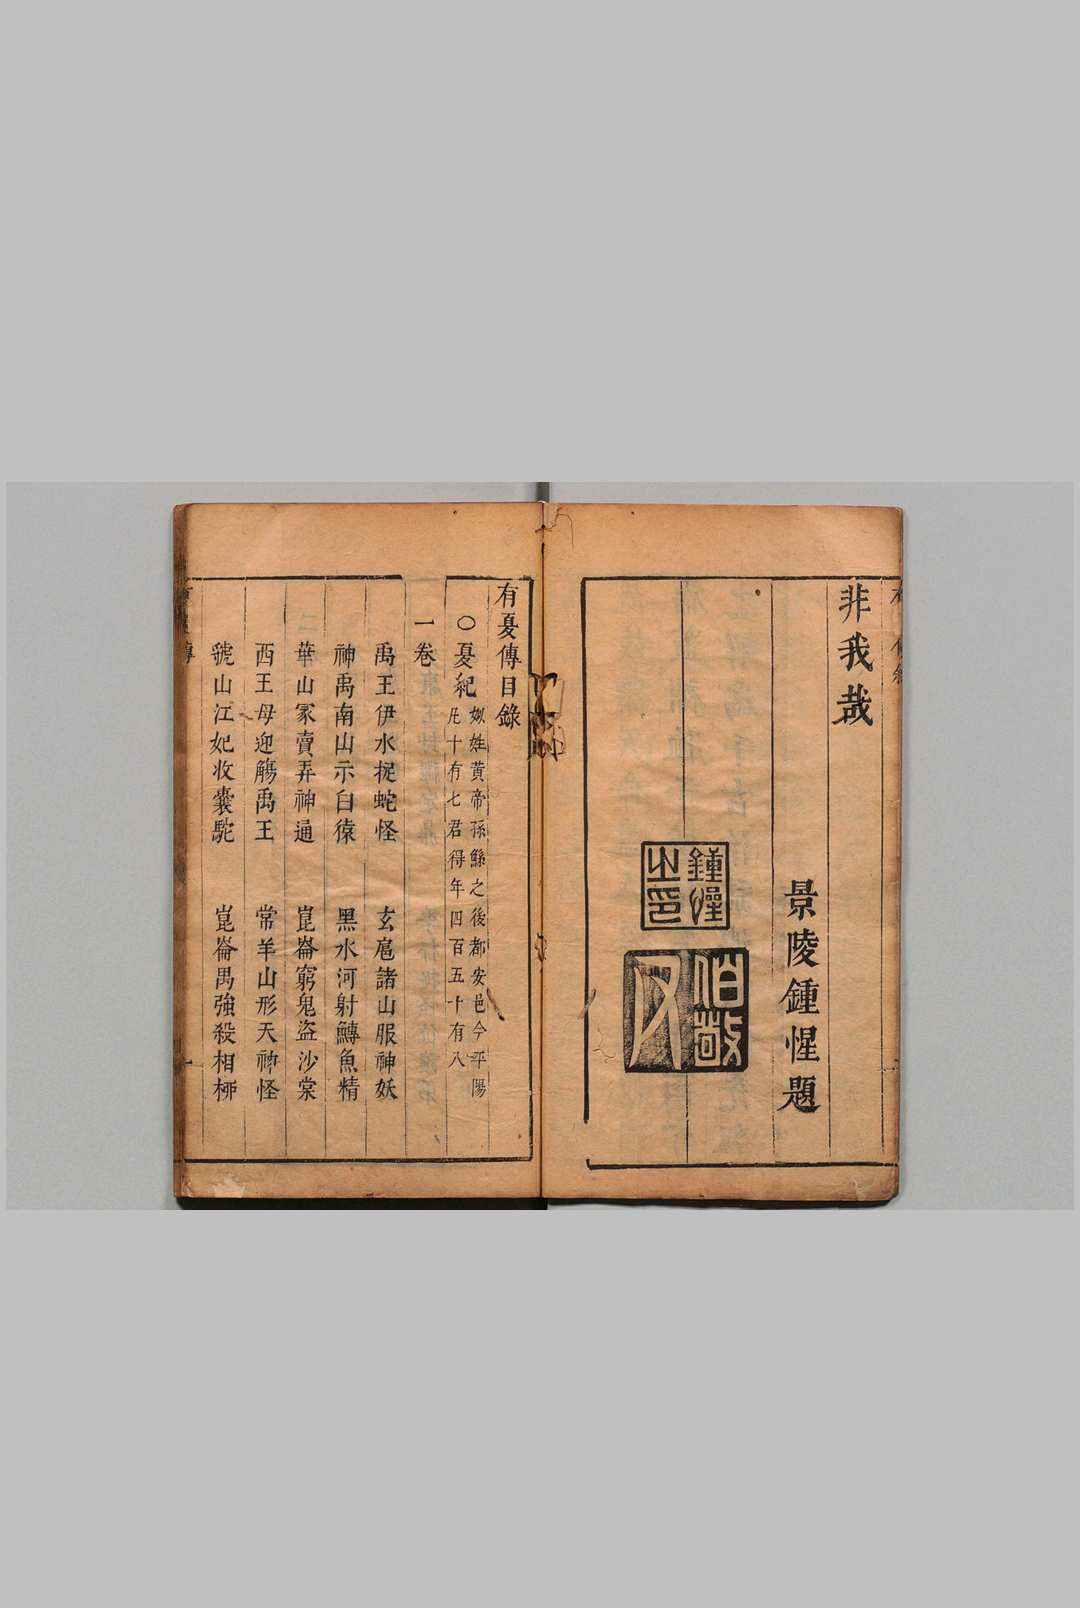 非我哉
景陵鍾惺題
鍾惺
之印
伯敬
父
有夏傳目錄
○夏紀
姒姓黃帝孫鯀之後都安邑今平陽
凡十有七君得年四百五十有八
一卷
禹王伊水捉蛇怪　玄扈諸山服神妖
神禹南山示白猿　黑水河射鱄魚精
華山冢賣弄神通　崑崙窮鬼盜沙棠
西王母迎觴禹王　常羊山形天神怪
號山江妃收橐駝　崑崙禺強殺相桺